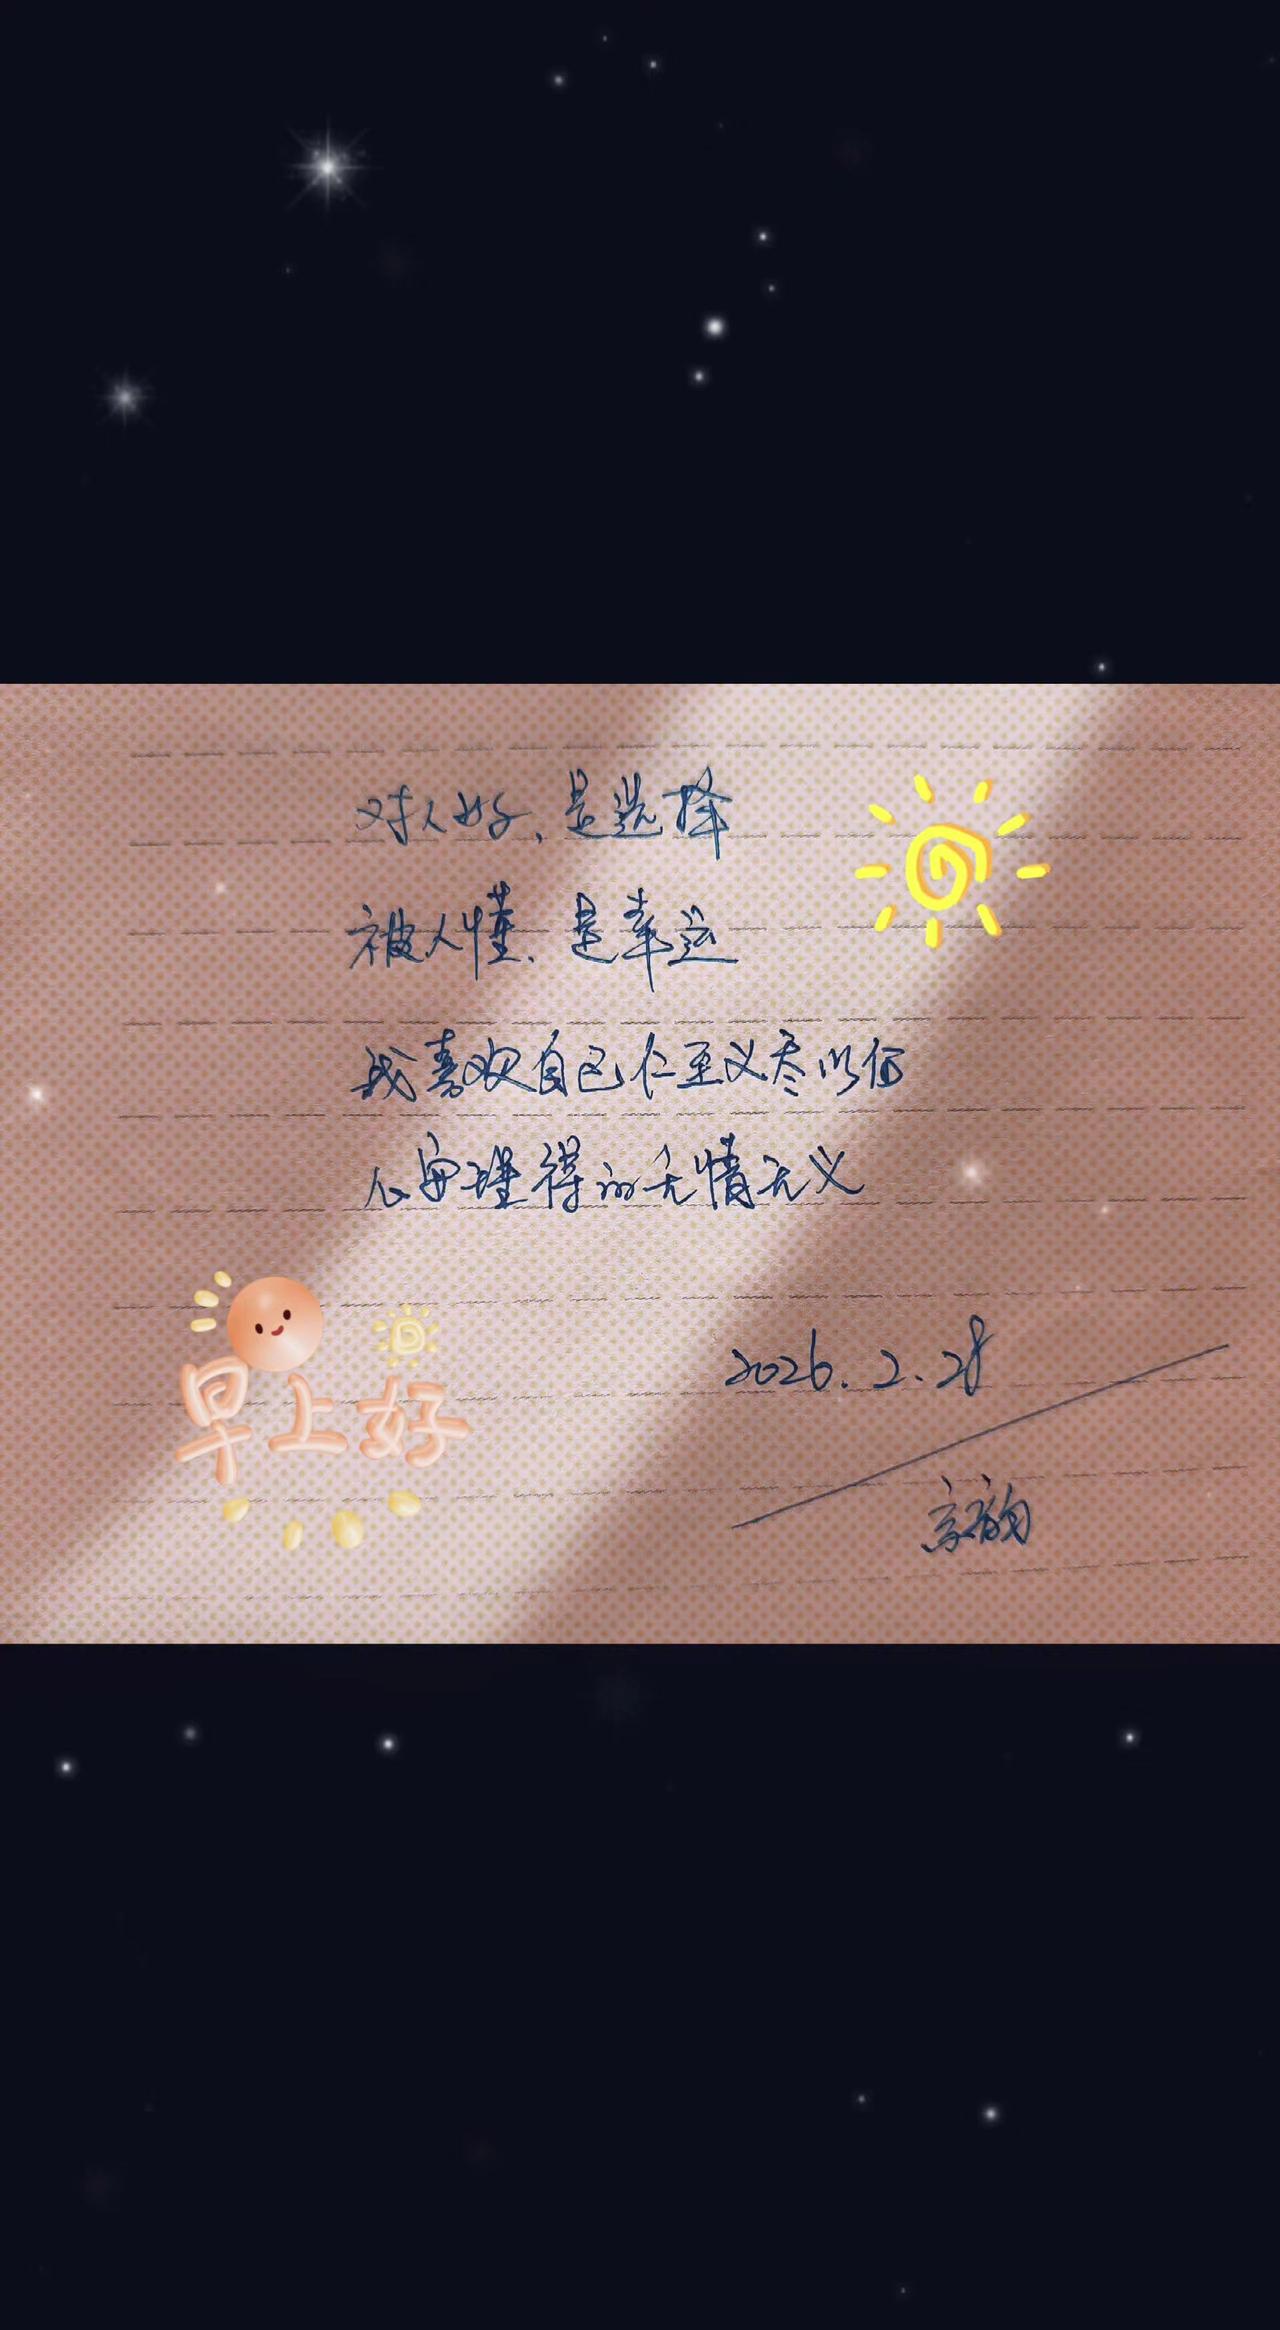 对人好、是选择
被人懂、是幸运
我喜欢自己仁至义尽以后
心安理得的无情无义
早上好
2026.2.28